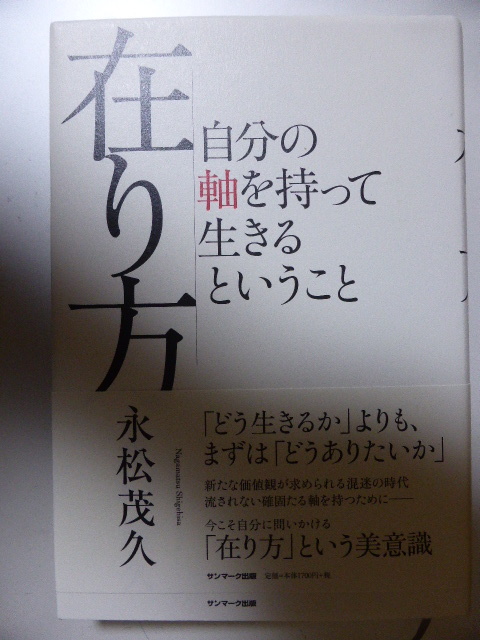 在り方
自分の
軸を持って
生きる
ということ
永松茂久
Nagamatsu Shigehisa
「どう生きるか」よりも、
まずは「どうありたいか」
新たな価値観が求められる混迷の時代
流されない確固たる軸を持つために――
今こそ自分に問いかける
「在り方」という美意識
サンマーク出版 定価=本体1700円+税
サンマーク出版